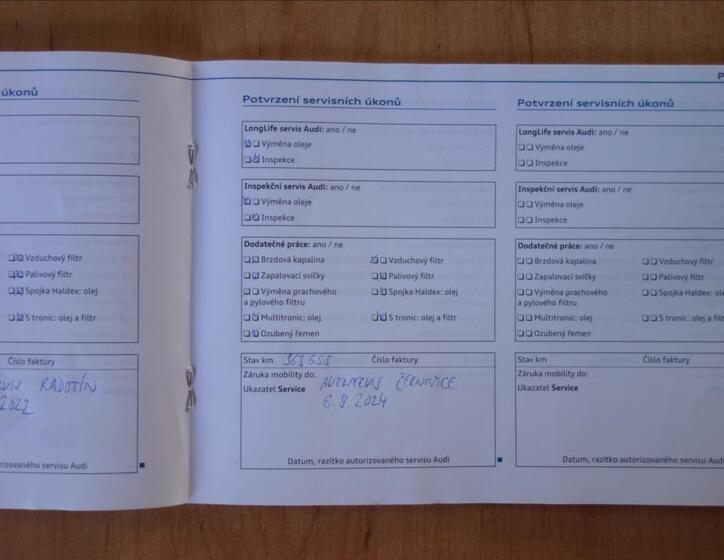 úkonů
Vzduchový filtr
Palivový filtr
Spojka Haldex: olej
S tronic: olej a filtr
Číslo faktury
RADOTÍN
2022
rizovaného servisu Audi
Potvrzení servisních úkonů
LongLife servis Audi: ano / ne
Výměna oleje
Inspekce
Inspekční servis Audi: ano / ne
Výměna oleje
Inspekce
Dodatečné práce: ano / ne
Brzdová kapalina Vzduchový filtr
Zapalovací svíčky Palivový filtr
Výměna prachového Spojka Haldex: olej
a pylového filtru
Multitronic: olej S tronic: olej a filtr
Ozubený řemen
Stav km 363655 Číslo faktury
Záruka mobility do: AUTOSERVIS ČERNOŠICE
Ukazatel Service 6. 9. 2024
Datum, razítko autorizovaného servisu Audi
P
Potvrzení servisních úkonů
LongLife servis Audi: ano / ne
Výměna oleje
Inspekce
Inspekční servis Audi: ano / ne
Výměna oleje
Inspekce
Dodatečné práce: ano / ne
Brzdová kapalina Vzduchový filtr
Zapalovací svíčky Palivový filtr
Výměna prachového Spojka Haldex: ole
a pylového filtru
Multitronic: olej S tronic: olej a filt
Ozubený řemen
Stav km Číslo faktury
Záruka mobility do:
Ukazatel Service
Datum, razítko autorizovaného servisu Audi